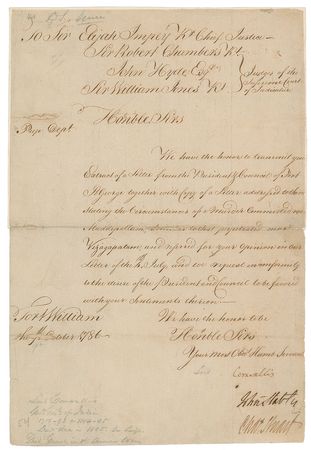 To Sir Elijah Impey Kt Chief Justice
Sir Robert Chambers Kt
John Hyde Esqr
Sir William Jones Kt
Judges of the
Supreme Court
of Judicature
Honble Sirs
Dept
We have the honor to transmit you
Extract of a Letter from the President & Council of Fort
St George together with Copy of a Letter addressed to them
stating the Circumstances of a Murder Committed
near
Vizagapatam, and referred for your Opinion in our
Letter of the July, and we request in conformity
to the desire of the President and Council to be favored
with your Sentiments thereon
Fort William
We have the honor to be
1786
Honble Sirs
Your Most Obedt Humb Servants
Cornwallis
John
Chas Stuart